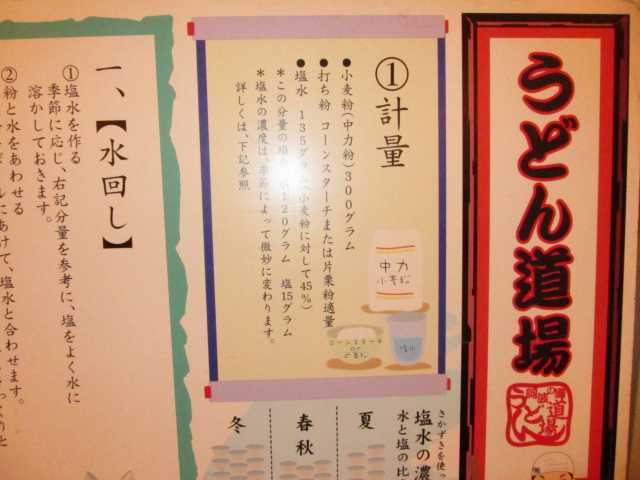 うどん道場
①計量
●小麦粉(中力粉)300グラム
●打ち粉 コーンスターチまたは片栗粉適量
●塩水 135グラム(小麦粉に対して45%)
*この分量の塩 120グラム 塩15グラム
*塩水の濃度は、季節によって微妙に変わります。
詳しくは、下記参照
中力
小麦粉
コーンスターチ
or
片栗粉
さかずきを使っ
塩水の濃
水と塩の比
夏
春秋
冬
一、【水回し】
①塩水を作る
季節に応じ、右記分量を参考に、塩をよく水に
溶かしておきます。
②粉と水をあわせる
にあけて、塩水と合わせます。